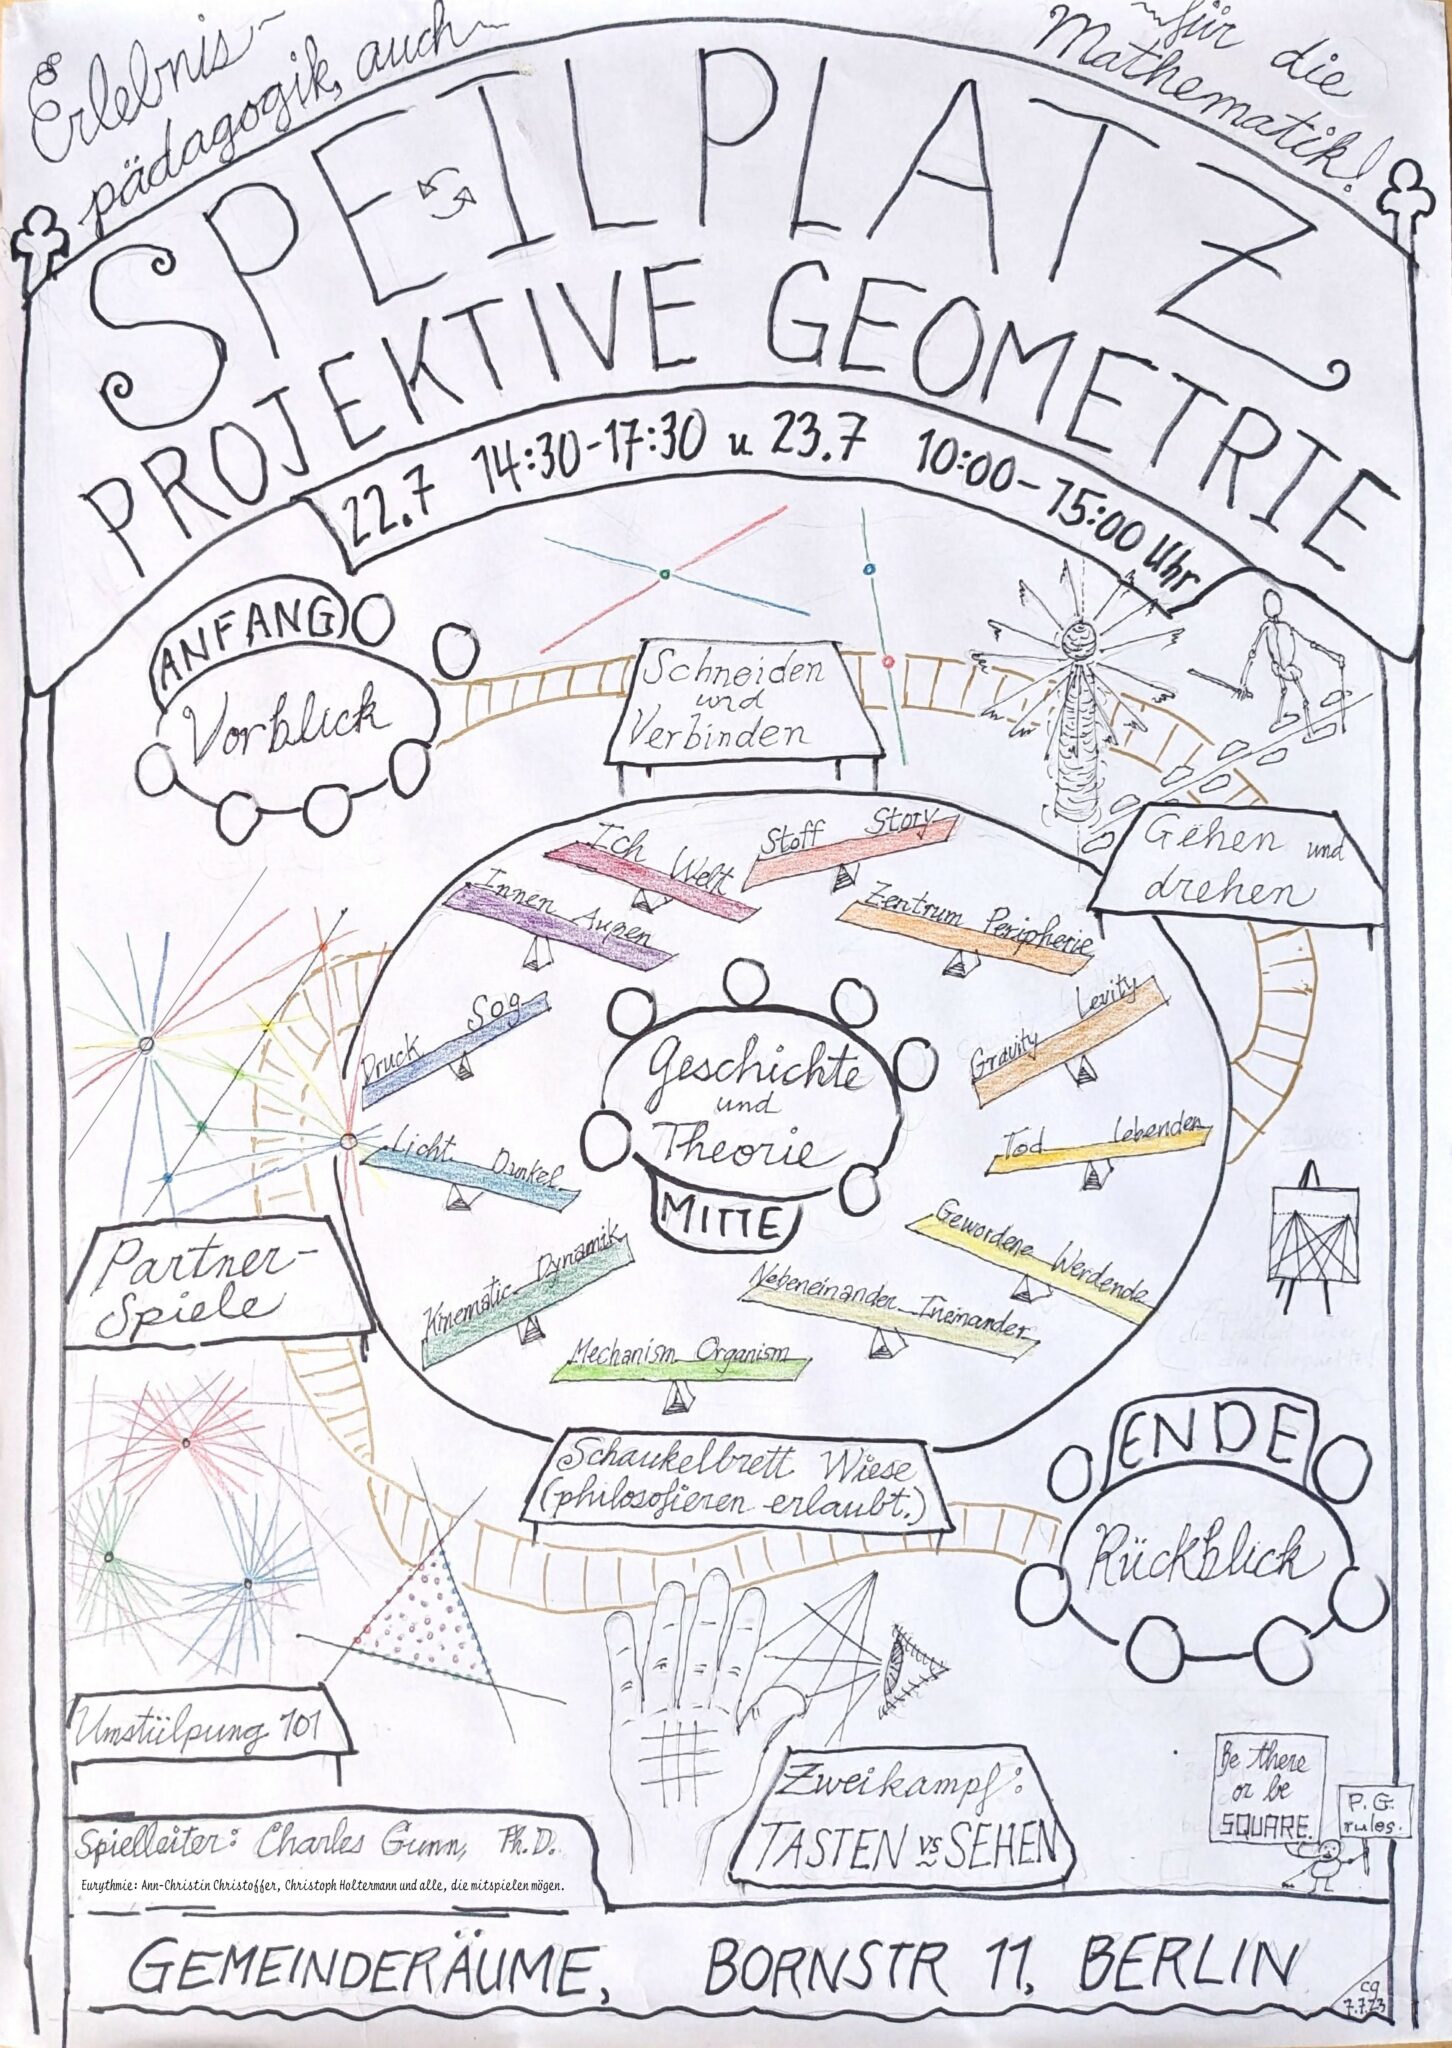 Erlebnis-
pädagogik, auch
für die
Mathematik!
SPEILPLATZ
PROJEKTIVE GEOMETRIE
22.7 14:30-17:30 u 23.7 10:00-15:00 Uhr
ANFANG
Vorblick
Schneiden
und
Verbinden
Gehen und
drehen
Ich Welt
Stoff Story
Innen Außen
Zentrum Peripherie
Druck Sog
Gravity Levity
Geschichte
und
Theorie
MITTE
Licht Dunkel
Tod Lebenden
Kinematic Dynamik
Gewordene Werdende
Nebeneinander Ineinander
Mechanism Organism
Partner-
Spiele
Schaukelbrett Wiese
(philosofieren erlaubt.)
ENDE
Rückblick
Umstülpung 101
Zweikampf:
TASTEN vs SEHEN
Be there
or be
SQUARE.
P.G.
rules.
Spielleiter: Charles Gunn, Ph.D.
Eurythmie: Ann-Christin Christoffer, Christoph Holtermann und alle, die mitspielen mögen.
GEMEINDERÄUME, BORNSTR 11, BERLIN
cg
7.7.23